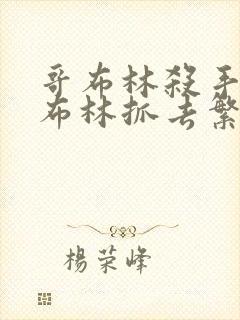 哥布林殺手
布林抓去繁
楊荣峰